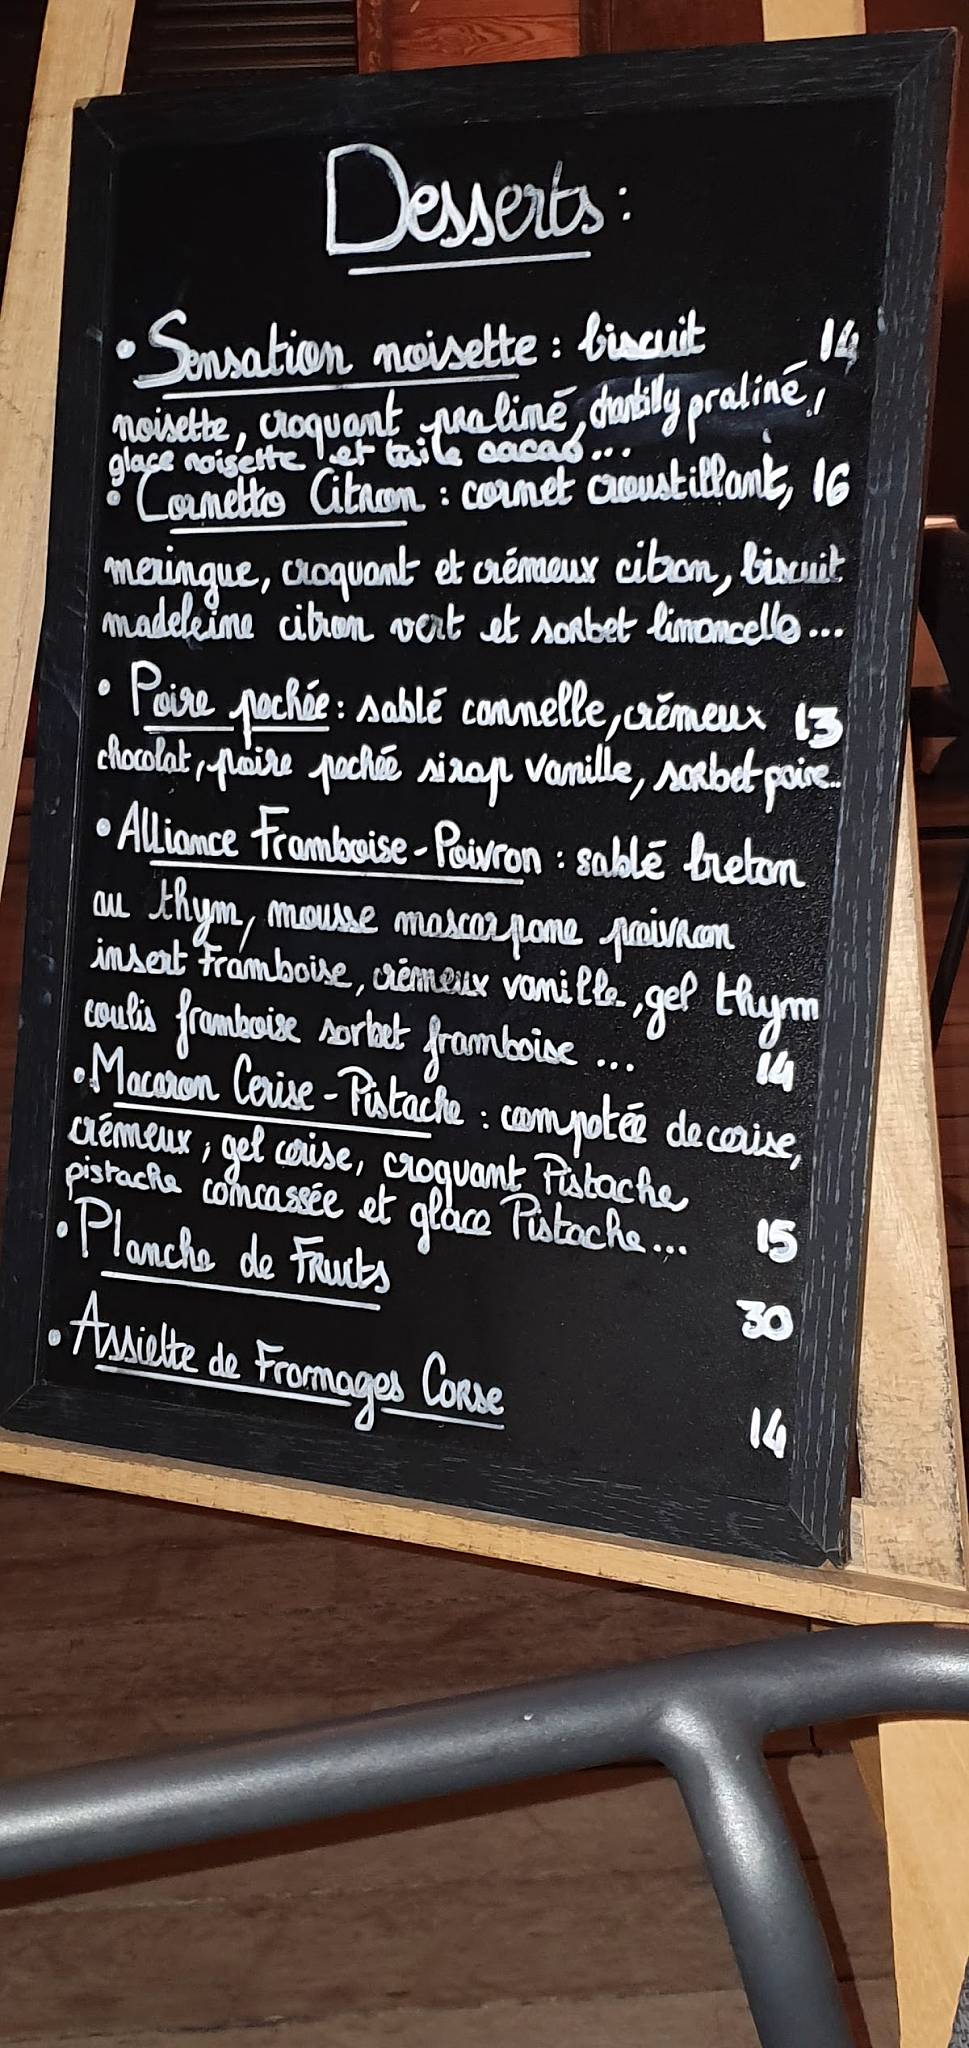 Desserts :
• Sensation noisette : biscuit 14
noisette, croquant praliné, chantilly praliné,
glace noisette et tuile cacao...
• Cornetto Citron : cornet croustillant, 16
meringue, croquant et crémeux citron, biscuit
madeleine citron vert et sorbet limoncello...
• Poire pochée : sablé cannelle, crémeux 13
chocolat, poire pochée sirop vanille, sorbet poire..
• Alliance Framboise - Poivron : sablé breton
au thym, mousse mascarpone poivron
insert framboise, crémeux vanille, gel thym
coulis framboise sorbet framboise ... 14
• Macaron Cerise - Pistache : compotée de cerise,
crémeux, gel cerise, croquant Pistache
pistache concassée et glace Pistache... 15
• Planche de Fruits 30
• Assiette de Fromages Corse 14